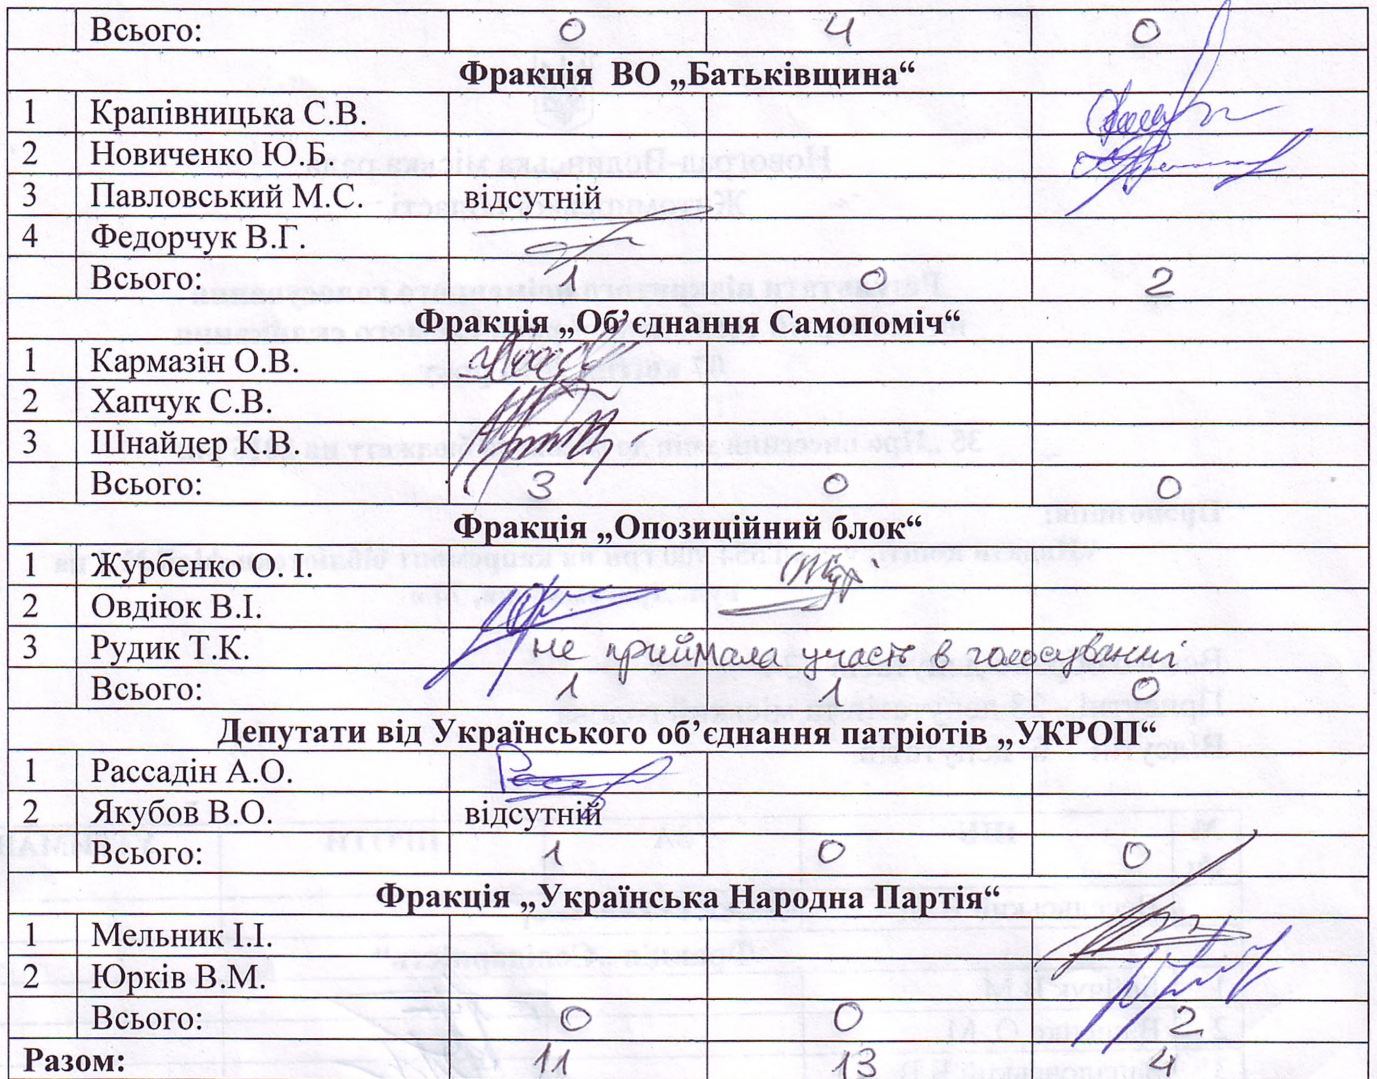 Всього: 0 4 0
Фракція ВО „Батьківщина“
1 Крапівницька С.В.
2 Новиченко Ю.Б.
3 Павловський М.С. відсутній
4 Федорчук В.Г.
Всього: 1 0 2
Фракція „Об’єднання Самопоміч“
1 Кармазін О.В.
2 Хапчук С.В.
3 Шнайдер К.В.
Всього: 3 0 0
Фракція „Опозиційний блок“
1 Журбенко О. І.
2 Овдіюк В.І.
3 Рудик Т.К. не приймала участь в голосуванні
Всього: 1 1 0
Депутати від Українського об’єднання патріотів „УКРОП“
1 Рассадін А.О.
2 Якубов В.О. відсутній
Всього: 1 0 0
Фракція „Українська Народна Партія“
1 Мельник І.І.
2 Юрків В.М.
Всього: 0 0 2
Разом: 11 13 4